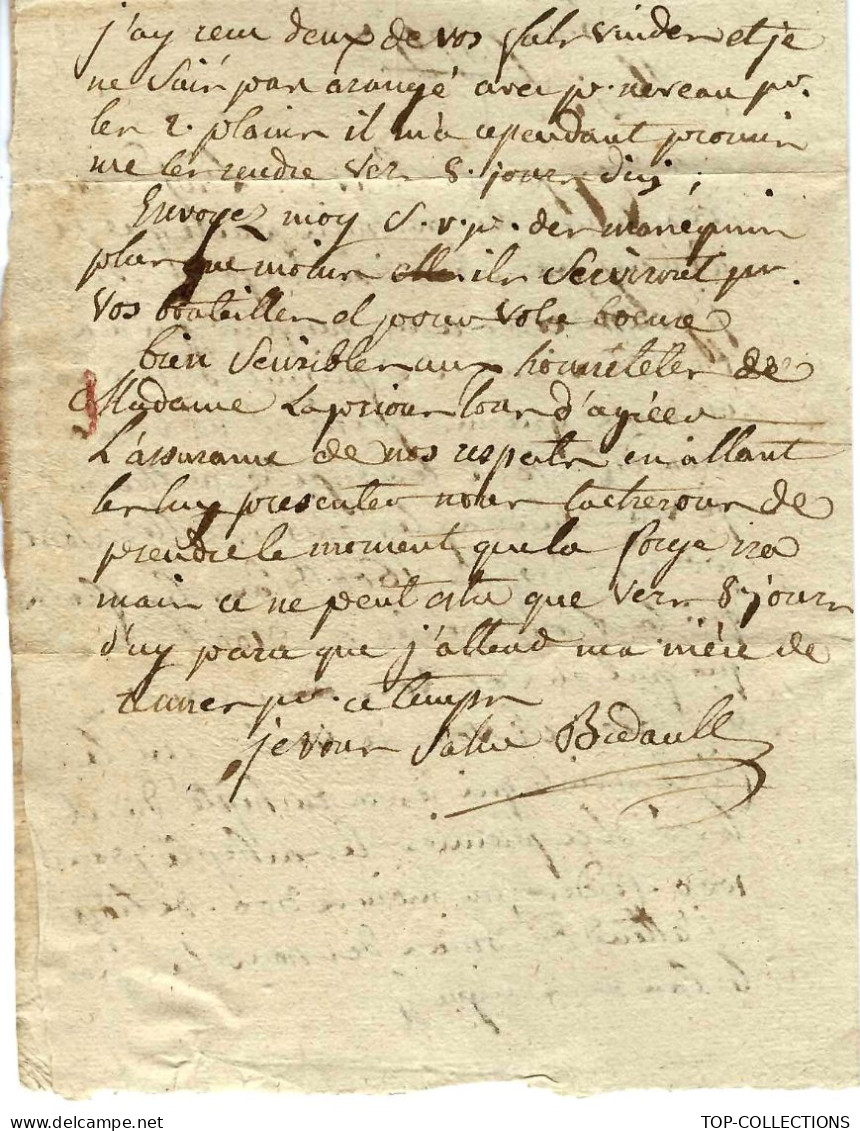 j'ay recu deux de vos futs vuides et je
ne sais pas arangé avec mr. nereau pr.
les 2. plains il m'a cependant promis
me les rendre vers 8. jours dicy ;
Envoyez moy S. v. p. des manequins
plus que moins ils serviront pr.
vos bouteilles et pour votre beure
bien sensibles aux honnêtetés de
Madame Lapriour d'agréer
L'assurance de nos respects en allant
les luy presenter nous tacherons de
prendre le moment que la forge ira
mais ce ne peut estre que vers 8. jours
d'icy parce que j'attend ma mére de
pr. ce temps
je vous salue Bidault
TOP-COLLECTIONS